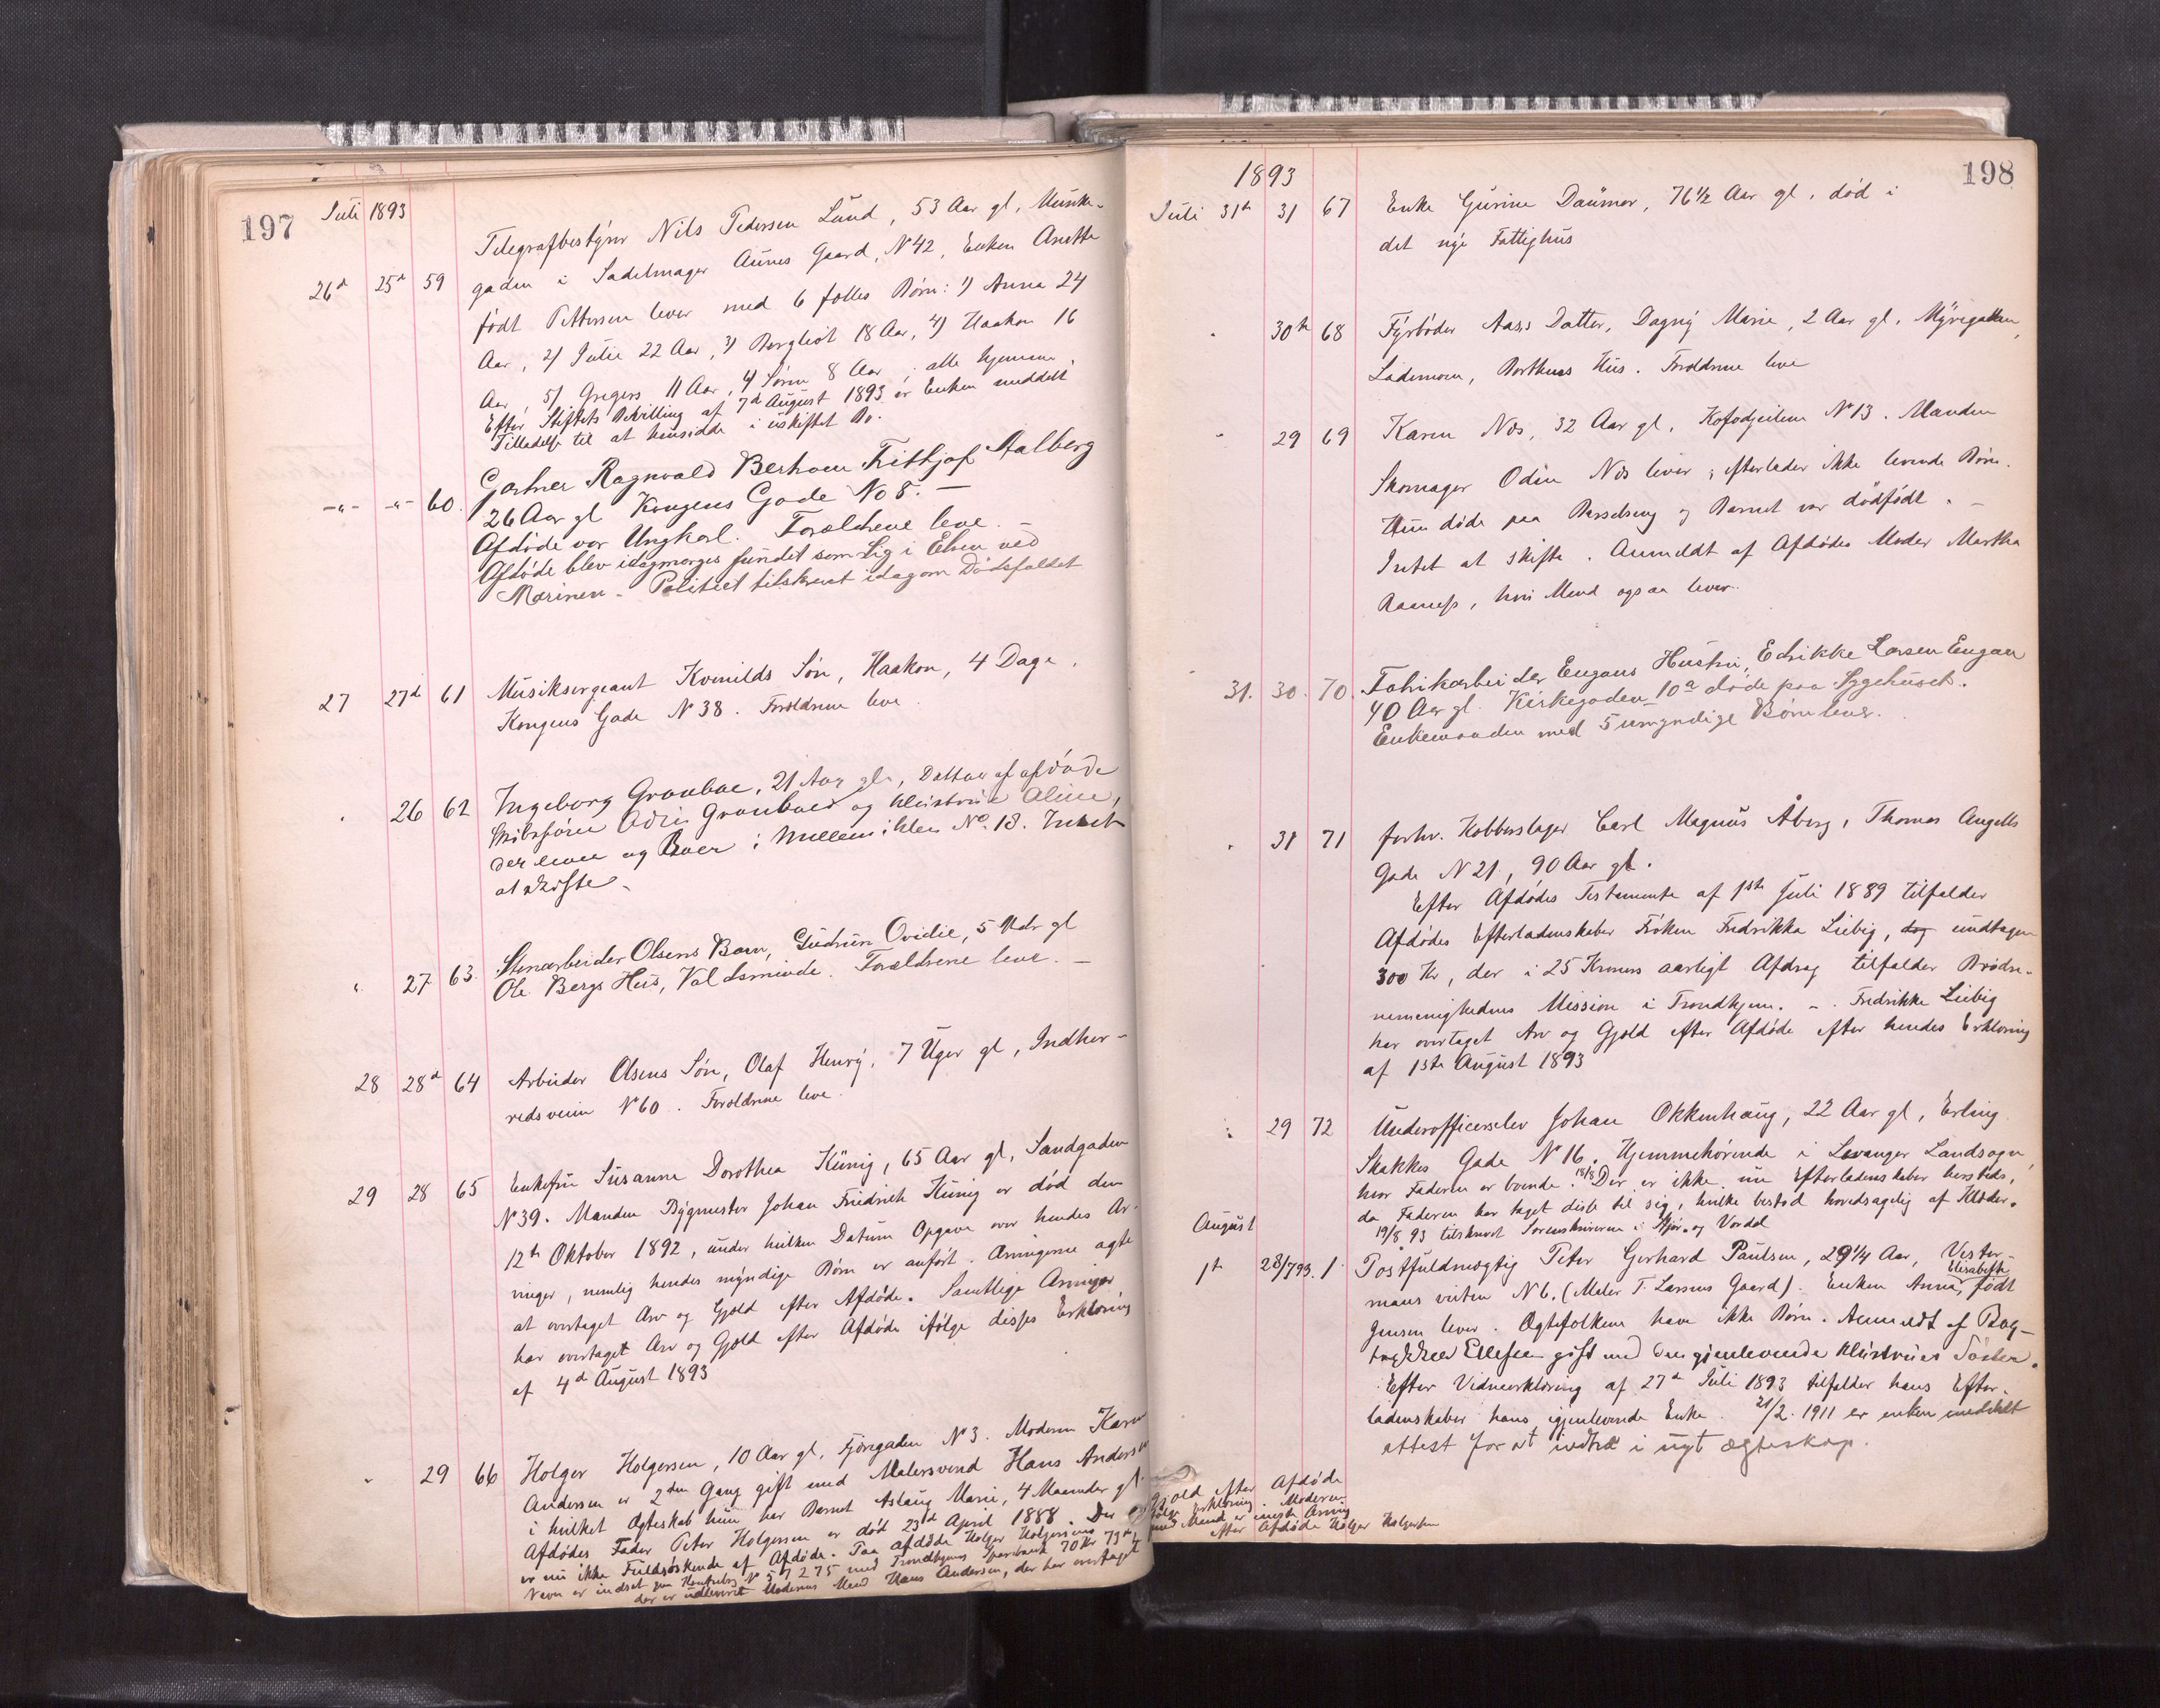 197
Juli 1893
26d 25d 59 Telegrafbestyrer Nils Pedersen Lund, 53 Aar gl, Munke-
gaden i Sadelmager Aunes Gaard, N 42, Enken Anette
født Pettersen lever med 6 fælles Børn: 1) Anna 24
Aar, 2) Julie 22 Aar, 3) Bergliot 18 Aar, 4) Haakon 16
Aar, 5) Gregers 11 Aar, Søren 8 Aar, alle hjemme.
Efter Stiftets Bevilling af 7d August 1893 er Enken meddelt
Tilladelse til at hensidde i uskiftet Bo.
-"- -"- 60. Gartner Ragnvald Fritthjof Aalberg
26 Aar gl Kongens Gade No 8. —
Afdøde var Ungkarl. Forældrene leve. —
Afdøde blev idagmorges fundet som Lig i Elven ved
Marinen - Politiet tilskrevet idag om Dødsfaldet
27 27d 61 Musiksergeant Kvenilds Søn, Haakon, 4 Dage,
Kongens Gade N 38. Forældrene leve.
" 26 62 Ingeborg Granboe, 21 Aar gl., Datter af afdøde
Granboe og Hustrue Aline,
der lever og Boer i Mellemihlen No. 18. Intet
at skifte.
" 27 63. Stenarbeider Olsens Barn, Gudrun Ovidie, 5 Mdr gl
Ole Bergs Hus, Valdsminde. Forældrene leve. —
28 28d 64 Arbeider Olsens Søn, Olaf Henry, 7 Uger gl, Indher-
redsveien N 60. Forældrene leve.
29 28 65 Enkefru Susanne Dorothea Künig, 65 Aar gl, Sandgaden
N 39. Manden Bygmester Johan Friedrich Künig er død den
12te Oktober 1892, under hvilken Datum Opgave over hendes Ar-
vinger, nemlig hendes myndige Børn er anført. Arvingerne agte
at overtaget Arv og Gjæld efter Afdøde. Samtlige Arvinger
har overtaget Arv og Gjæld efter Afdøde ifølge disses Erklæring
af 4d August 1893
" 29 66 Holger Holgersen, 10 Aar gl, Fjæregaden N 3. Moderen Karen
Andersen er 2den Gang gift med Malersvend Hans Andersen
i hvilket Ægteskab hun har Barnet Aslaug Marie, 4 Maaneder gl.
Afdødes Fader Peter Holgersen er død 23d April 1888. Der
er nu ikke Fuldsøskende af Afdøde. Paa afdøde Holger Holgersens
Navn er indsat paa Kontrabog N 57275 med Trondhjems Sparebank 70 Kr 73
der er udleveret Moderens Mand Hans Andersen, der har overtaget
198
1893
Juli 31te 31 67 Enke Gurine Daumer, 76 1/2 Aar gl, død i
det nye Fattighus
" 30te 68 Fyrbøder Aass Datter, Dagny Marie, 2 Aar gl, Myregaden,
Lademoen, Hus. Forældrene leve
" 29 69 Karen Næs, 32 Aar gl, Kofodgeilene N 13. Manden
Skomager Odin Næs lever; efterlader ikke levende Børn.
Hun døde paa Barselseng og Barnet var dødfødt. —
Intet at skifte. Anmeldt af Afdødes Moder Martha
, hvis Mand ogsaa lever.
31. 30. 70. Fabrikarbeider Engans Hustru, Edrikke Larsen Engan
40 Aar gl. Kirkegaden 10a døde paa Sygehuset.
Enkemanden med 5 umyndige Børn lever.
" 31 71 forhv. Kobberslager Carl Magnus Åberg, Thomas Angells
Gade N 21, 90 Aar gl.
Efter Afdødes Testamente af 1ste Juli 1889 tilfalder
Afdødes Efterladenskaber Frøken Fredrikka Liebig, dog undtagen
300 Kr, der i 25 Kroners aarligt Afdrag tilfalder Brødre-
menighedens Mission i Trondhjem. — Fredrikke Liebig
har overtaget Arv og Gjæld efter Afdøde efter hendes Erklæring
af 1ste August 1893
" 29 72 Underofficerselev Johan Okkenhaug, 22 Aar gl, Erling
Skakkes Gade N 16. Hjemmehørende i Levanger Landsogn,
hvor Faderen er boende. 18/8 Der er ikke nu Efterladenskaber hersteds,
da Faderen har taget disse til sig, hvilke bestod hovedsagelig af Klæder.
19/8 93 tilskrevet Sorenskriveren i Stjør- og Værdal
August
1te 28/7 93. 1. Postfuldmægtig Peter Gerhard Paulsen, 29 1/4 Aar, Vester-
mans veiten N 6. (Maler T. Larsens Gaard). Enken Anna Elisabeth, født
Jensen lever. Ægtefolkene have ikke Børn. Anmeldt af Bog-
trykker Ellefsen gift med den gjenlevende Hustrues Søster.
Efter Vidneerklæring af 27de Juli 1893 tilfalder hans Efter-
ladenskaber hans igjenlevende Enke. 21/2. 1911 er enken meddelt
attest for at indtræ i nyt ægteskap.
Gjæld efter Afdøde
ifølge Erklæring. Moderen
med Mand er eneste Arving
efter Afdøde Holger Holgersen